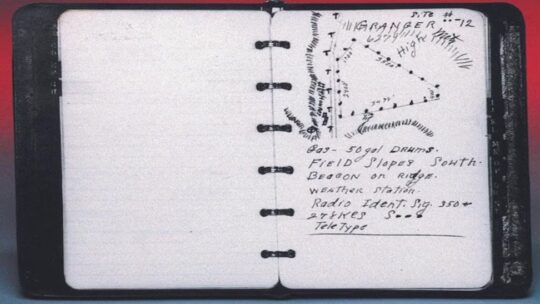 S. To # -12
GRANGER
6279 High
Gas - 50 gal Drums.
FIELD Slopes South.
BEACON on Ridge.
WEATHER Station.
Radio Ident. Sig. 350 +
278 KCS S
TeleType